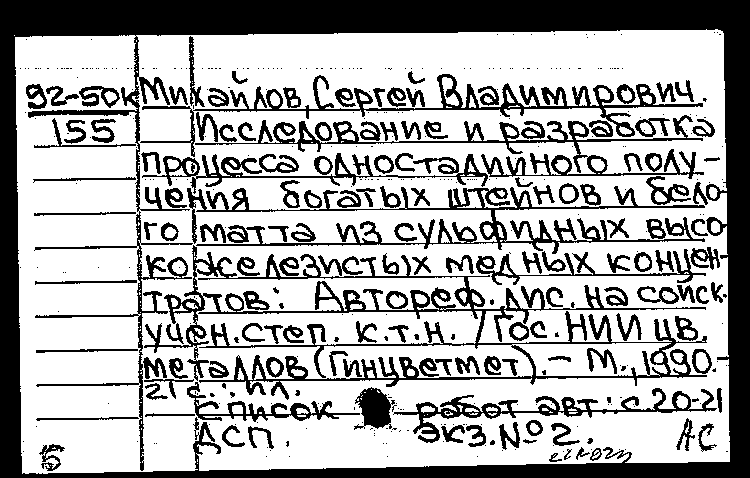 92-50к Михайлов, Сергей Владимирович.
155 Исследование и разработка
процесса одностадийного полу-
чения богатых штейнов и бело-
го матта из сульфидных высо-
кожелезистых медных концен-
тратов: Автореф. дис. на соиск.
учен. степ. к.т.н. / Гос. НИИ цв.
металлов (Гинцветмет). – М., 1990.-
21 с.: ил.
Список работ авт.: с. 20-21
ДСП. экз. № 2. АС
Б